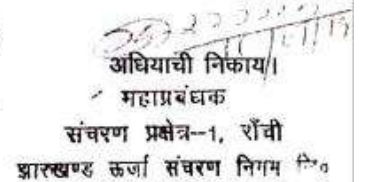 अधियाची निकाय।
महाप्रबंधक
संचरण प्रक्षेत्र--1, राँची
झारखण्ड ऊर्जा संचरण निगम लि०